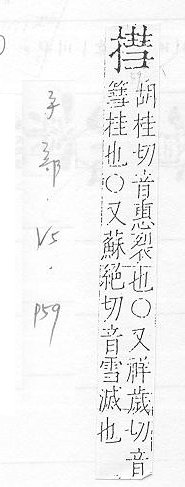 胡桂切音惠裂也○又祥歲切音
篲桂也○又蘇絕切音雪滅也
手部.V5.P59